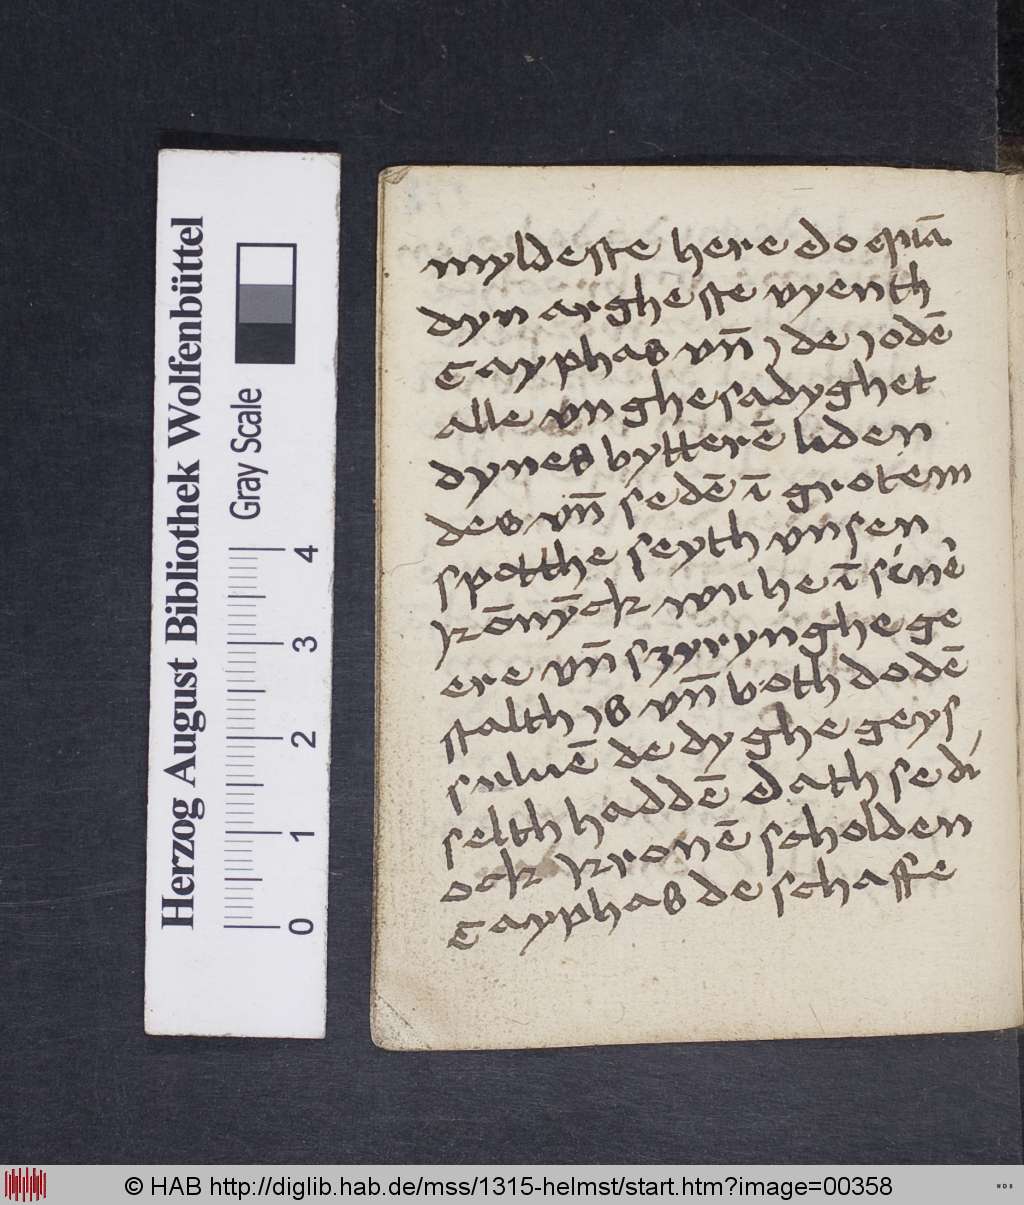 myldeste here do quā
dyn argheste vyenth
Cayphas vn̄ ı de ȷodē
alle vnghesadyghet
dynes bytterē liden
des vn̄ sedē ī grotem
spotthe seyth vnsen
kōnȳck wu he ī sinē
ere vn̄ szyrynghe ge
stalth ıs vn̄ both dodē
suluē de dy ghe geys
selth haddē dath se di
ock kronē scholden
Cayphas de schaffe
Herzog August Bibliothek Wolfenbüttel
Gray Scale
0 1 2 3 4
© HAB http://diglib.hab.de/mss/1315-helmst/start.htm?image=00358